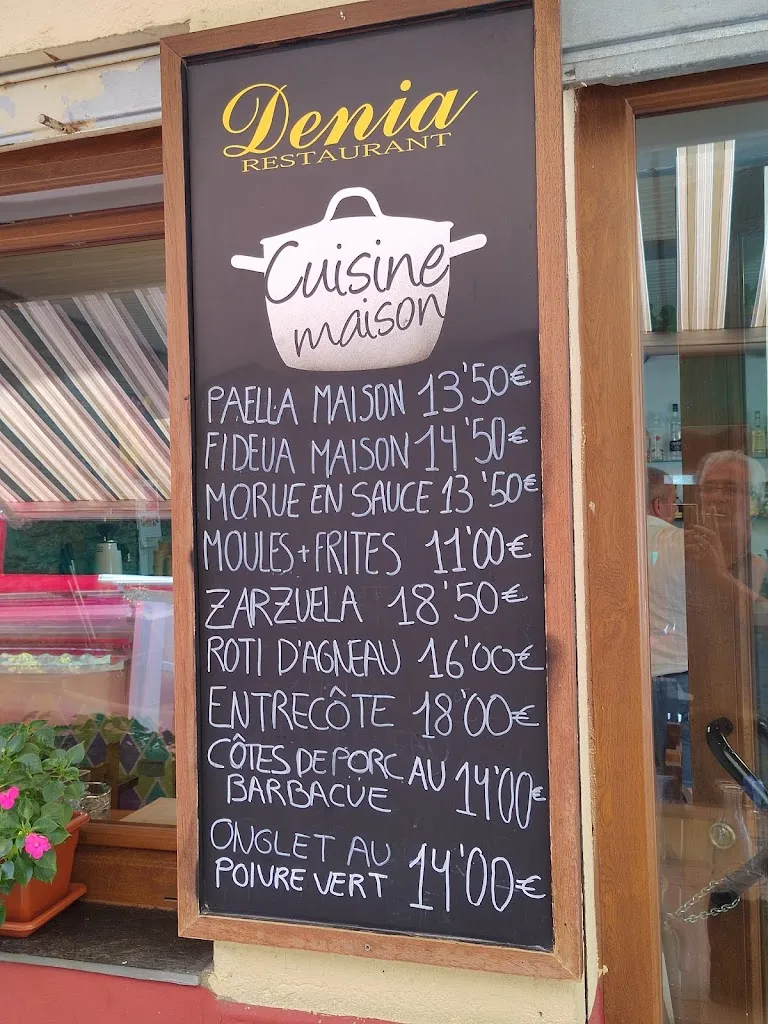 Denia
RESTAURANT
Cuisine
maison
PAELLA MAISON 13'50€
FIDEUA MAISON 14'50€
MORUE EN SAUCE 13'50€
MOULES+FRITES 11'00€
ZARZUELA 18'50€
ROTI D'AGNEAU 16'00€
ENTRECÔTE 18'00€
CÔTES DE PORC AU 14'00€
BARBACUE
ONGLET AU 14'00€
POIVRE VERT